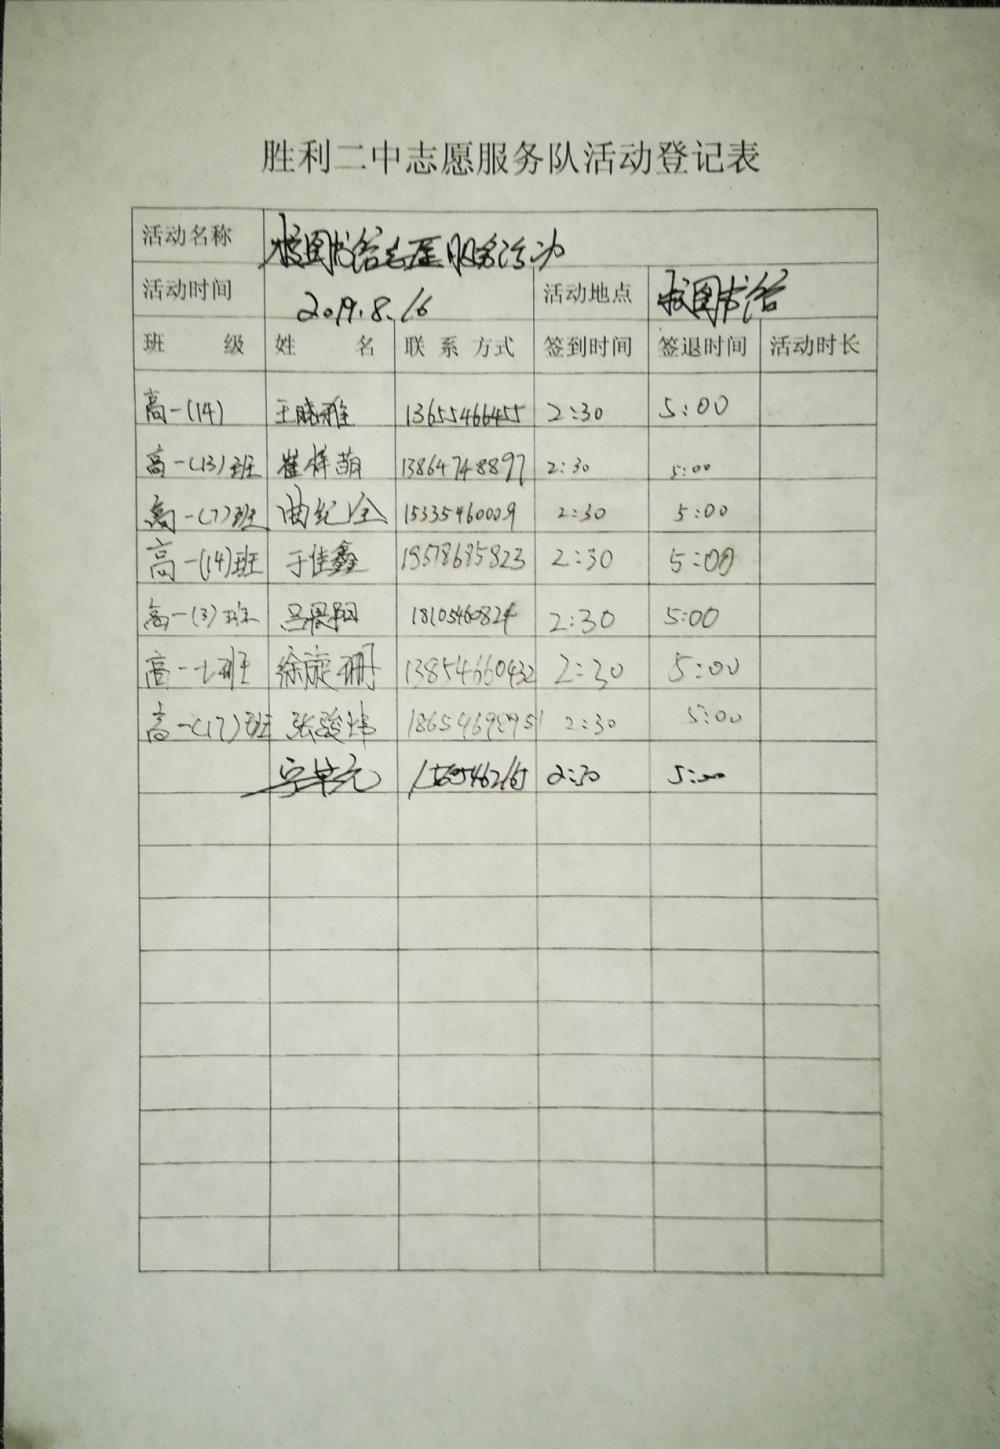 胜利二中志愿服务队活动登记表
活动名称 校图书馆志愿服务活动
活动时间 2019.8.16 活动地点 校图书馆
班 级 姓 名 联 系 方式 签到时间 签退时间 活动时长
高一(14) 王晓雅 13655466455 2:30 5:00
高一(13)班 崔梓萌 13864748897 2:30 5:00
高一(7)班 曲纪全 15335460009 2:30 5:00
高一(14)班 于佳鑫 2:30 5:00
高一(3)班 18105460824 2:30 5:00
高一七班 徐旋珊 13854660432 2:30 5:00
高一(17)班 2:30 5:00
2:30 5:00